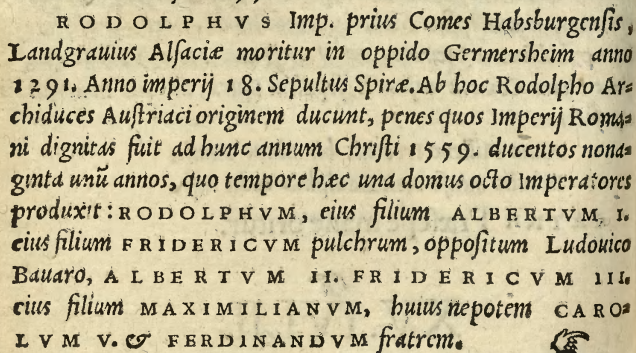 RODOLPHVS Imp. prius Comes Habsburgenſis,
Landgrauius Alſaciæ moritur in oppido Germersheim anno
1291. Anno imperij 18. Sepultus Spiræ. Ab hoc Rodolpho Ar⸗
chiduces Auſtriaci originem ducunt, penes quos Imperij Roma⸗
ni dignitas fuit ad hunc annum Chriſti 1559. ducentos nona⸗
ginta unũ annos, quo tempore hæc una domus octo Imperatores
produxit: RODOLPHVM, eius filium ALBERTVM I.
eius filium FRIDERICVM pulchrum, oppoſitum Ludouico
Bauaro, ALBERTVM II. FRIDERICVM III.
eius filium MAXIMILIANVM, huius nepotem CARO⸗
LVM V. & FERDINANDVM fratrem.